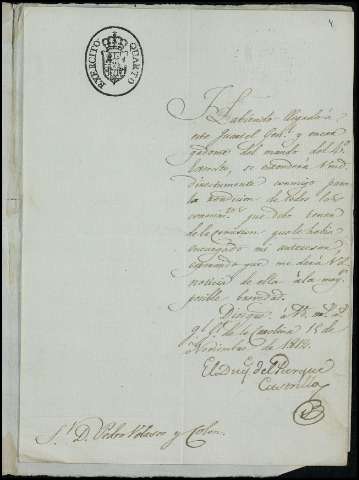 EXERCITO QUARTO
Habiendo llegado á
este Quartel Gen.l y encar
gadome del mando del 4.º
Exercito, se entenderá Vmd.
directamente conmigo para
la rendicion de todos los
que debe tener
de la comision que le habia
encargado mi antecesor,
esperando que me dará Vd.
noticia de ella á la mayor
posible brevedad.
Dios gue. á Vd. m.s a.s
Q.l G.l de la Carolina 15 de
Noviembre de 1812.
El Duq. del Parque
Castrillo
S.r D. Pedro Velasco y Colon.